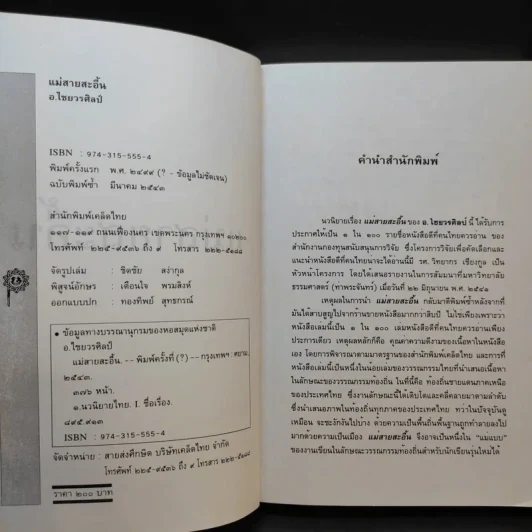 แม่สายสะอื้น
อ.ไชยวรศิลป์
ISBN : 974-315-555-4
พิมพ์ครั้งแรก พ.ศ. ๒๔๙๙ (? - ข้อมูลไม่ชัดเจน)
ฉบับพิมพ์ซ้ำ มีนาคม ๒๕๔๓
สำนักพิมพ์เคล็ดไทย
๑๑๗-๑๑๙ ถนนเฟื่องนคร เขตพระนคร กรุงเทพฯ ๑๐๒๐๐
โทรศัพท์ ๒๒๕-๙๕๓๖ ถึง ๙ โทรสาร ๒๒๒-๕๑๘๘
จัดรูปเล่ม : ชิตชัย สง่ากุล
พิสูจน์อักษร : เตือนใจ พรมสิงห์
ออกแบบปก : ทองทิพย์ สุทธกรณ์
• ข้อมูลทางบรรณานุกรมของหอสมุดแห่งชาติ
อ.ไชยวรศิลป์
แม่สายสะอื้น. -- พิมพ์ครั้งที่ (?) -- กรุงเทพฯ: สยาม.
๒๕๔๓.
๓๗๖ หน้า.
๑.นวนิยายไทย. I. ชื่อเรื่อง.
๘๙๕.๙๑๓
ISBN : 974-315-555-4
จัดจำหน่าย : สายส่งศึกษิต บริษัทเคล็ดไทย จำกัด
โทรศัพท์ ๒๒๕-๙๕๓๖ ถึง ๙ โทรสาร ๒๒๒-๕๑๘๘
ราคา ๒๐๐ บาท
คำนำสำนักพิมพ์
นวนิยายเรื่อง แม่สายสะอื้น ของ อ.ไชยวรศิลป์ นี้ ได้รับการ
ประกาศให้เป็น ๑ ใน ๑๐๐ รายชื่อหนังสือดีที่คนไทยควรอ่าน ของ
สำนักงานกองทุนสนับสนุนการวิจัย ซึ่งโครงการวิจัยเพื่อคัดเลือกและ
แนะนำหนังสือดีที่คนไทยน่าจะได้อ่านนี้มี รศ.วิทยากร เชียงกูล เป็น
หัวหน้าโครงการ โดยได้เสนอรายงานในการสัมมนาที่มหาวิทยาลัย
ธรรมศาสตร์ (ท่าพระจันทร์) เมื่อวันที่ ๒๒ มิถุนายน พ.ศ. ๒๕๔๑
เหตุผลในการนำ แม่สายสะอื้น กลับมาตีพิมพ์ซ้ำหลังจากที่
มันได้สาบสูญไปจากร้านขายหนังสือมากกว่าสิบปี ไม่ใช่เพียงเพราะว่า
หนังสือเล่มนี้เป็น ๑ ใน ๑๐๐ เล่มหนังสือดีที่คนไทยควรอ่านเพียง
ประการเดียว เหตุผลหลักก็คือ คุณค่าความดีงามของเนื้อหาในหนังสือ
เอง โดยการพิจารณาตามมาตรฐานของสำนักพิมพ์เคล็ดไทย และการที่
หนังสือเล่มนี้เป็นหนึ่งในน้อยเล่มของวรรณกรรมไทยที่นำเสนอเนื้อหา
ในลักษณะของวรรณกรรมท้องถิ่น ในที่นี้คือ ท้องถิ่นชายแดนภาคเหนือ
ของประเทศไทย ซึ่งงานลักษณะนี้ได้เติบโตและคลี่คลายมาตามลำดับ
ซึ่งนำเสนอภาพในท้องถิ่นทุกภาคของประเทศไทย ทว่าในปัจจุบันดู
เหมือน จะชะงักงันไปบ้าง ด้วยความเป็นพื้นถิ่นพื้นฐานถูกทำลายลงไป
มากด้วยความเป็นเมือง แม่สายสะอื้น จึงอาจเป็นหนึ่งใน "แม่แบบ"
ของงานเขียนในลักษณะวรรณกรรมท้องถิ่นสำหรับนักเขียนรุ่นใหม่ได้